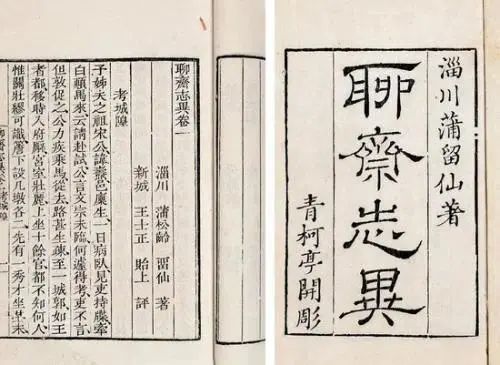 淄川蒲留仙著
聊齋志異
青柯亭開彫
聊齋志異卷一
淄川 蒲松齡 留仙 著
新城 王士正 貽上 評
考城隍
予姊夫之祖宋公諱燾邑廩生一日病臥見吏持牒牽
白顛馬來云請赴試公言文宗未臨何遽得考吏不言
但敦促之公力疾乘馬從去路甚生疎至一城郭如王
者都移時入府廨宮室壯麗上坐十餘官都不知何人
惟關壯繆可識簷下設几墩各二先有一秀才坐其末